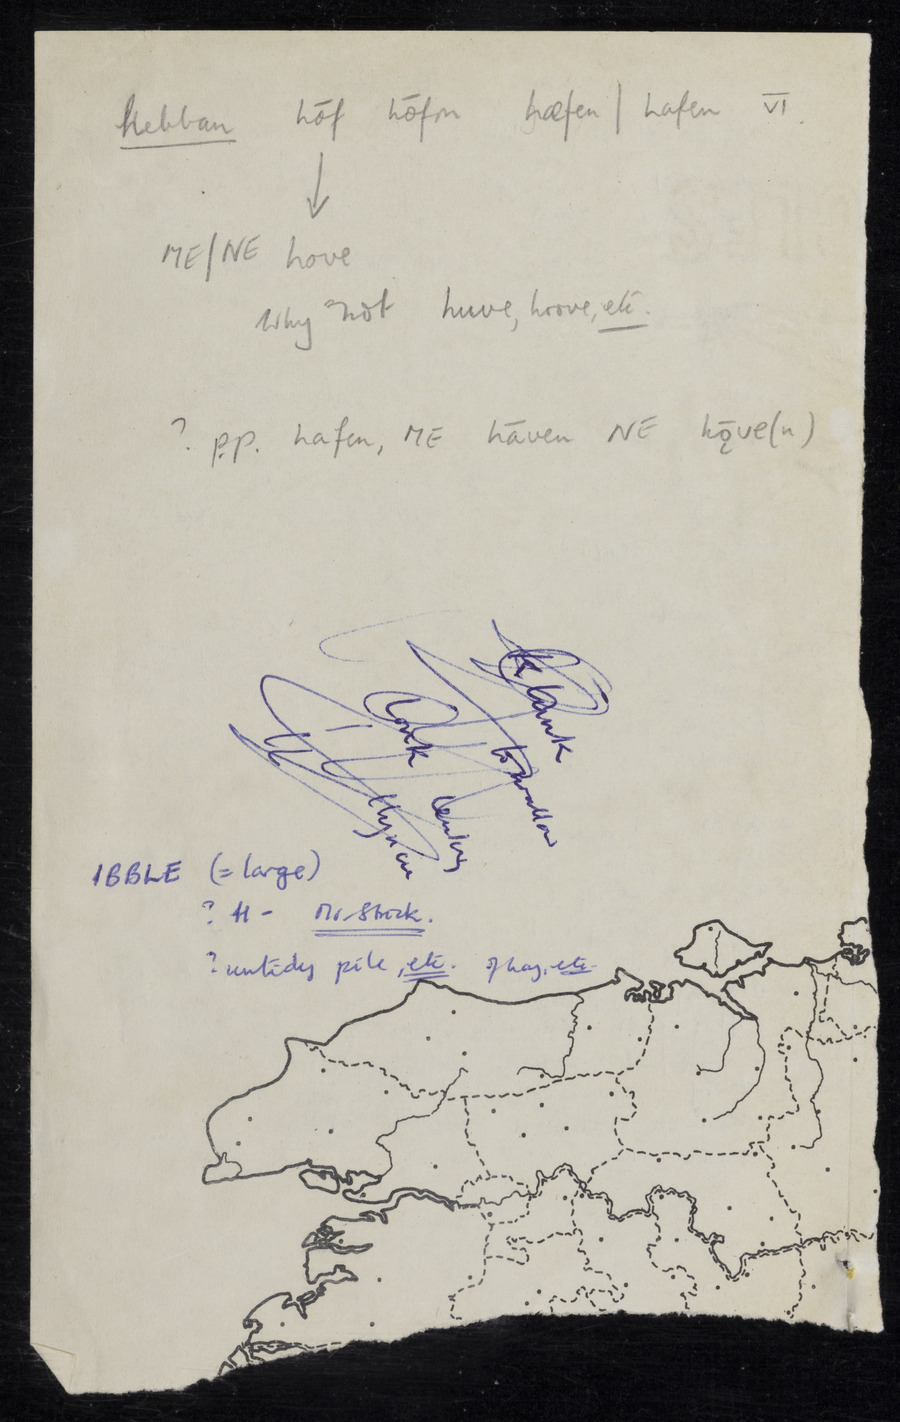 Hebban hōf hōfon hæfen / hafen VI.
ME/NE hove
Why not huve, hoove, etc.
? p.p. hafen, ME hāven NE hǭve(n)
to wallow
IBBLE (= large)
? H -
? untidy pile, etc. of hay, etc.